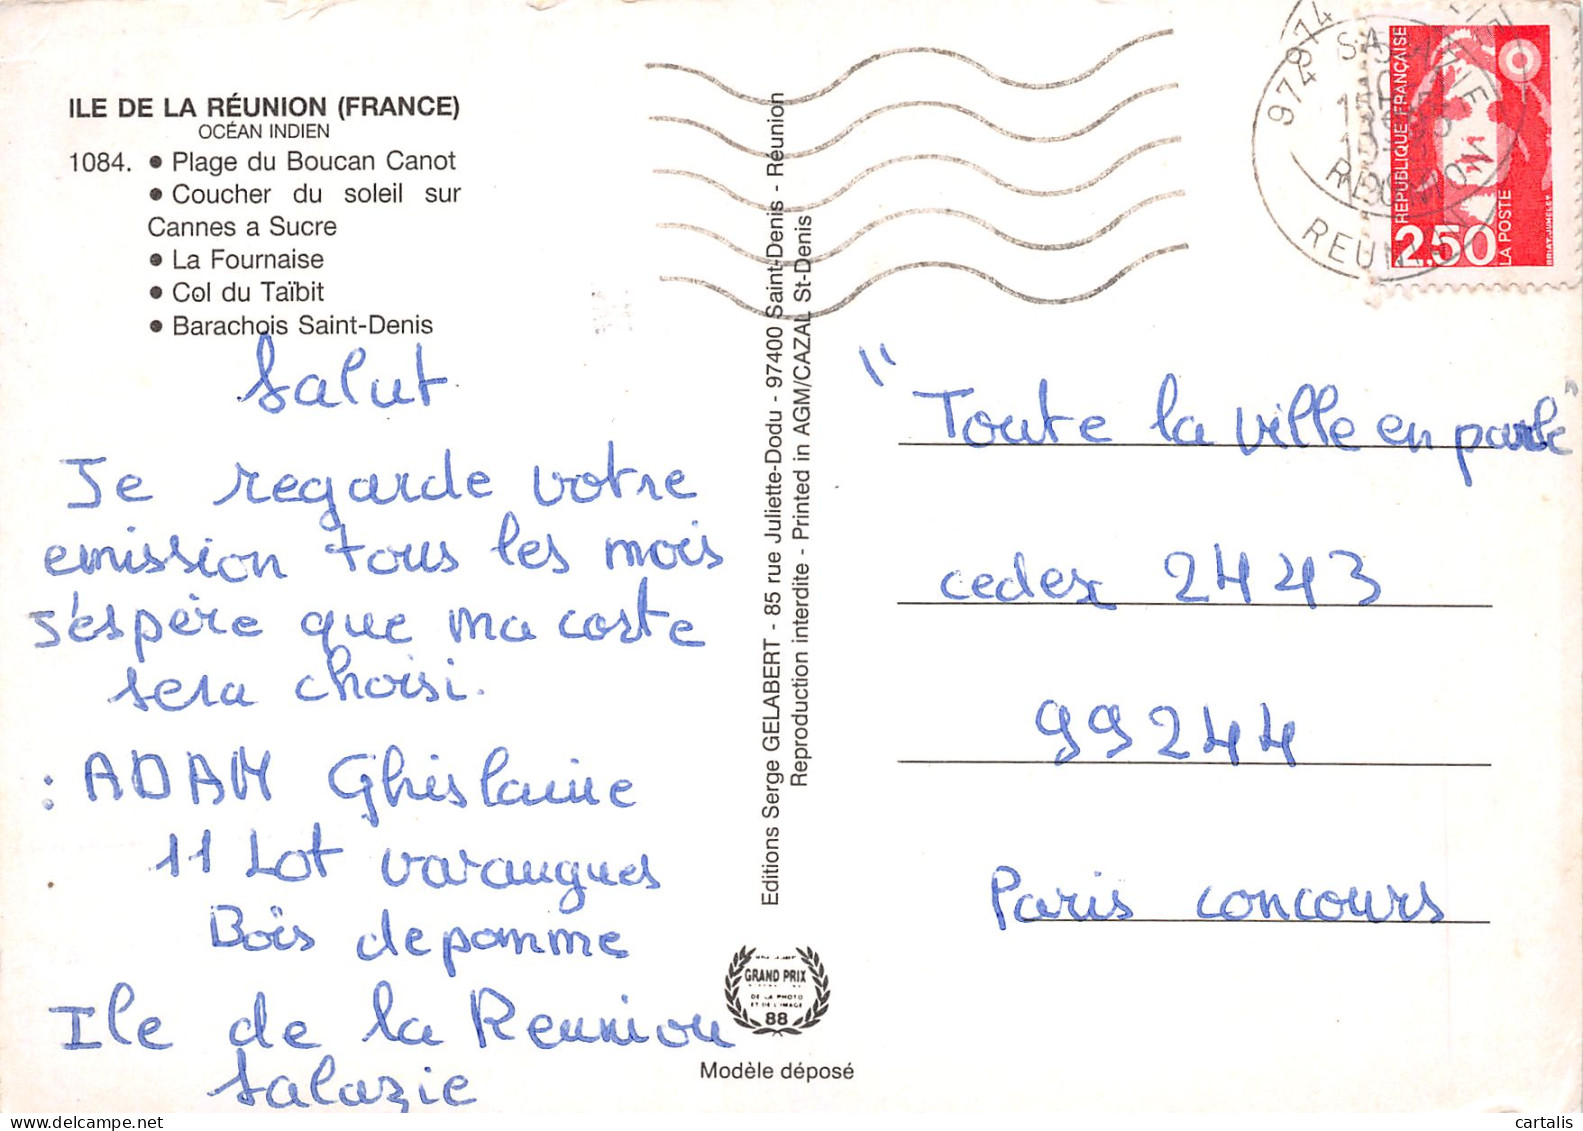 ILE DE LA RÉUNION (FRANCE)
OCÉAN INDIEN
1084. • Plage du Boucan Canot
• Coucher du soleil sur
Cannes a Sucre
• La Fournaise
• Col du Taïbit
• Barachois Saint-Denis
Salut
Je regarde votre
emission tous les mois
j'espère que ma coste
sera choisi.
: ADAM Ghislaine
11 Lot varangues
Bois de pomme
Ile de la Reunion
Salazie
Editions Serge GELABERT - 85 rue Juliette-Dodu - 97400 Saint-Denis - Réunion
Reproduction interdite - Printed in AGM/CAZAL St-Denis
GRAND PRIX
DE LA PHOTO
ET DE L'IMAGE
88
Modèle déposé
974
REUNION
RÉPUBLIQUE FRANÇAISE
2,50
LA POSTE
BRIAT. JUMELET
"Toute la ville en parle"
cedex 2443
99244
Paris concours
cartalis